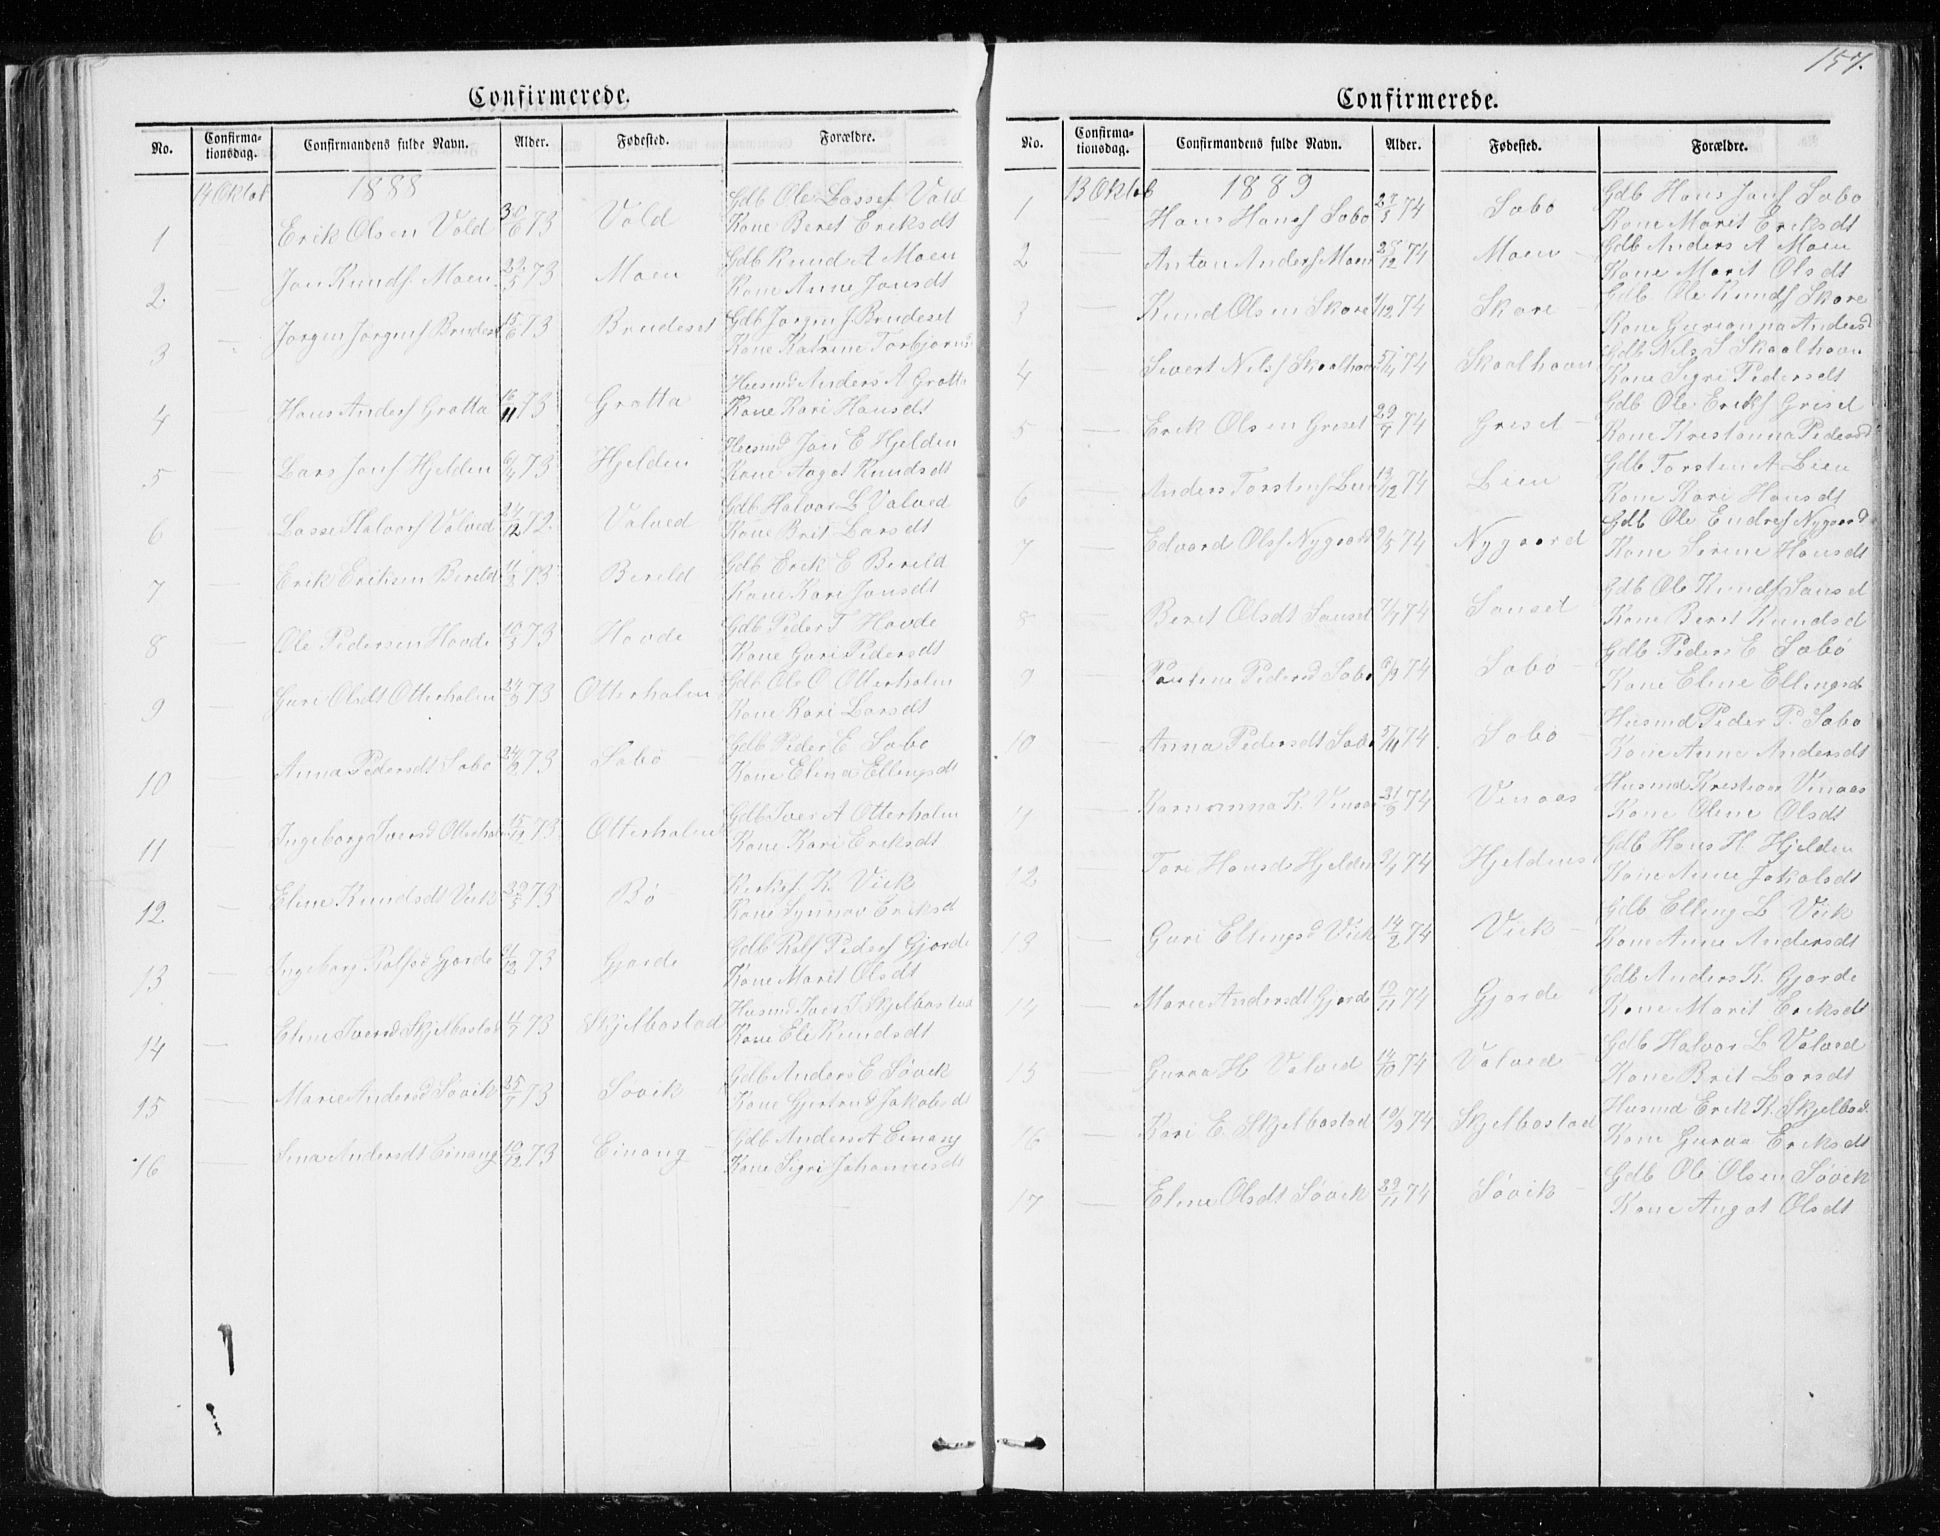 Confirmerede.
No. Confirma-tionsdag. Confirmandens fulde Navn. Alder. Fødested. Forældre.
14 Oktob 1888
1 Erik Olsen Vold 30/6 73 Vold Gdb Ole Lassesf Vold
Kone Beret Eriksdt
2. Jon Knudsf Moen 23/5 73 Moen Gdb Knud A Moen
Kone Anne Jonsdt
3 Jorgen Jorgensf Brudeset 15/6 73 Brudeset Gdb Jorgen J. Brudeset
Kone Katrine Torbjorns
4 Hans Andersf Grotta 16/11 73 Grotta Husmd Anders A Grotta
Kone Kari Hansdt
5 Lars Jonsf Hjelden 6/4 73 Hjelden Husmd Jon E Hjelden
Kone Aagot Knudsdt
6 Lasse Halvorsf Valved 24/12 72. Valved Gdb Halvor L Valved
Kone Brit Larsdt
7 Erik Eriksen Bereld 73 Bereld Gdb Erik E Bereld
Kone Kari Jonsdt
8 Ole Pedersen Hovde 10/3 73 Hovde Gdb Peder T Hovde
Kone Guri Pedersdt
9 Guri Olsdt Otterholm 24/9 73 Otterholm Gdb Ole O Otterholm
Kone Kari Larsdt
10 Anna Pedersdt Sobo 24/2 73 Sobø Gdb Peder E Sobo
Kone Elena Ellingsdt
11 Ingeborg Iversd Otterholm 15/12 73 Otterholm Gdb Iver A Otterholm
Kone Kari Eriksdt
12 Eline Knudsdt Viik 30/5 73 Bø K. Viik
Kone Synnov Eriksd
13 Ingeborg Rolfsd Gjorde 73 Gjorde Gdb Rolf Pedersf Gjorde
Kone Marit Olsdt
14 Eline Iversd Skjelbostad 11/7 73 Skjelbostad Husmd Iver I Skjelbostad
Kone Eli Knudsdt
15 Marie Andersd Søvik 25/7 73 Sovik Gdb Anders E Søvik
Kone Gjertrud Jakobsdt
16 Sina Andersdt Einang 10/12 73 Einang Gdb Anders A Einang
Kone Sigri Johannesdt
157.
Confirmerede.
No. Confirma-tionsdag. Confirmandens fulde Navn. Alder. Fødested. Forældre.
13 Oktob 1889
1 Hans Hansf Sobo 27/5 74 Sobø Gdb Hans Jonsf Sobo
Kone Marit Eriksdt
2 Anton Andersf Moen 28/12 74 Moen Gdb Anders A Moen
Kone Marit Olsdt
3 Knud Olsen Skore 1/12 74 Skore Gdb Ole Knudsf Skore
Kone Gurianna Andersd
4 Sivert Nilsf Skaalhavn 5/4 74 Skaalhavn Gdb Nils S Skaalhavn
Kone Sigri Pedersdt
5 Erik Olsen Griset 29/7 74 Griset Gdb Ole Eriksf Griset
Kone Kristianna Pedersd
6 Anders Torstensf Lien 13/12 74 Lien Gdb Torsten A Lien
Kone Kari Hansdt
7 Edvard Olsf Nygaard 9/5 74 Nygaard Gdb Ole Endresf Nygaard
Kone Sirine Hansdt
8 Beret Olsdt Sanset 7/7 74 Sanset Gdb Ole Knudsf Sanset
Kone Berit Knudsd
9 Pauline Pedersd Sobo 6/9 74 Sobø Gdb Peders E Sobø
Kone Eline Ellingsdt
10 Anna Pedersdt Sobo 5/11 74 Sobø Husmd Peder P. Sobo
Kone Anne Andersdt
11 K. Vinaas 21/9 74 Vinaas Husmd Kristian Vinaas
Kone Oline Olsdt
12 Tori Hansd Hjelden 3/1 74 Hjelden Gdb Hans H. Hjelden
Kone Anne Jakobsdt
13 Guri Ellingsd Viik 14/2 74 Viik Gdb Elling L Viik
Kone Anne Andersdt
14 Marie Andersdt Gjorde 19/11 74 Gjorde Gdb Anders K. Gjorde
Kone Marit Eriksdt
15 Guraa H Valved 14/10 74 Valved Gdb Halvor L Valved
Kone Brit Larsdt
16 Kari E. Skjelbostad 10/9 74 Skjelbostad Husmd Erik K. Skjelbod.
Kone Guraa Eriksdt
17 Eline Olsdt Søvik 29/11 74 Søvik Gdb Ole Olsen Søvik
Kone Aagot Olsdt